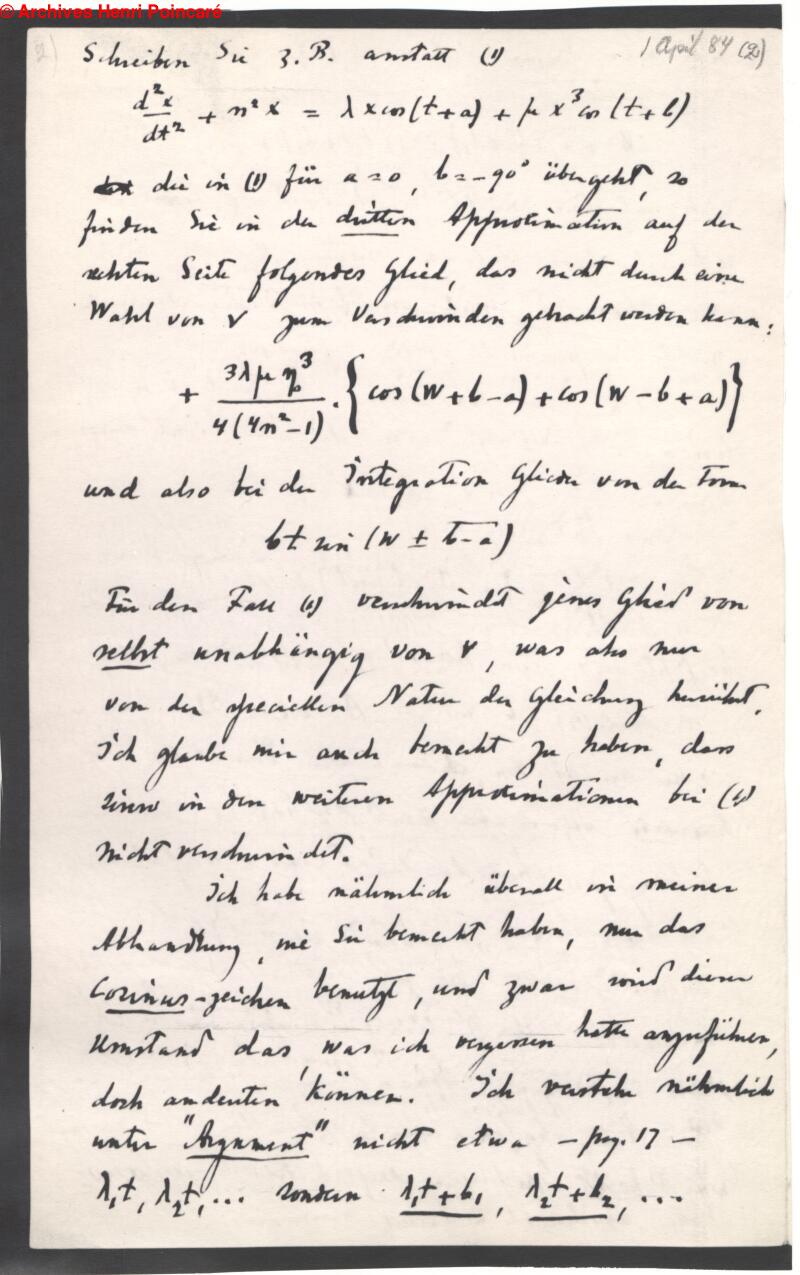 © Archives Henri Poincaré
2) 1 April 84 (2)
Schreiben Sie z.B. anstatt (1)
d²x/dt² + n²x = λ x cos(t+a) + μ x³ cos(t+b)
die in (1) für a=0, b=-90° übergeht, so
finden Sie in der dritten Approximation auf der
rechten Seite folgendes Glied, das nicht durch eine
Wahl von ν zum Verschwinden gebracht werden kann:
+ 3λμη₀³/4(4n²-1) · {cos(W+b-a) + cos(W-b+a)}
und also bei der Integration Glieder von der Form
bt sin(W ± b-a)
Für den Fall (1) verschwindet jenes Glied von
selbst unabhängig von ν, was also nur
von der speciellen Natur der Gleichung herrührt.
Ich glaube mir auch bemerkt zu haben, dass
in den weiteren Approximationen bei (1)
nicht verschwindet.
Ich habe nähmlich überall in meiner
Abhandlung, wie Sie bemerkt haben, nur das
Cosinus-zeichen benutzt, und zwar wird dieser
Umstand das, was ich vergessen hatte anzuführen,
doch andeuten können. Ich verstehe nähmlich
unter "Argument" nicht etwa – pag. 17 –
λ₁t, λ₂t, ... sondern λ₁t+b₁, λ₂t+b₂, ...